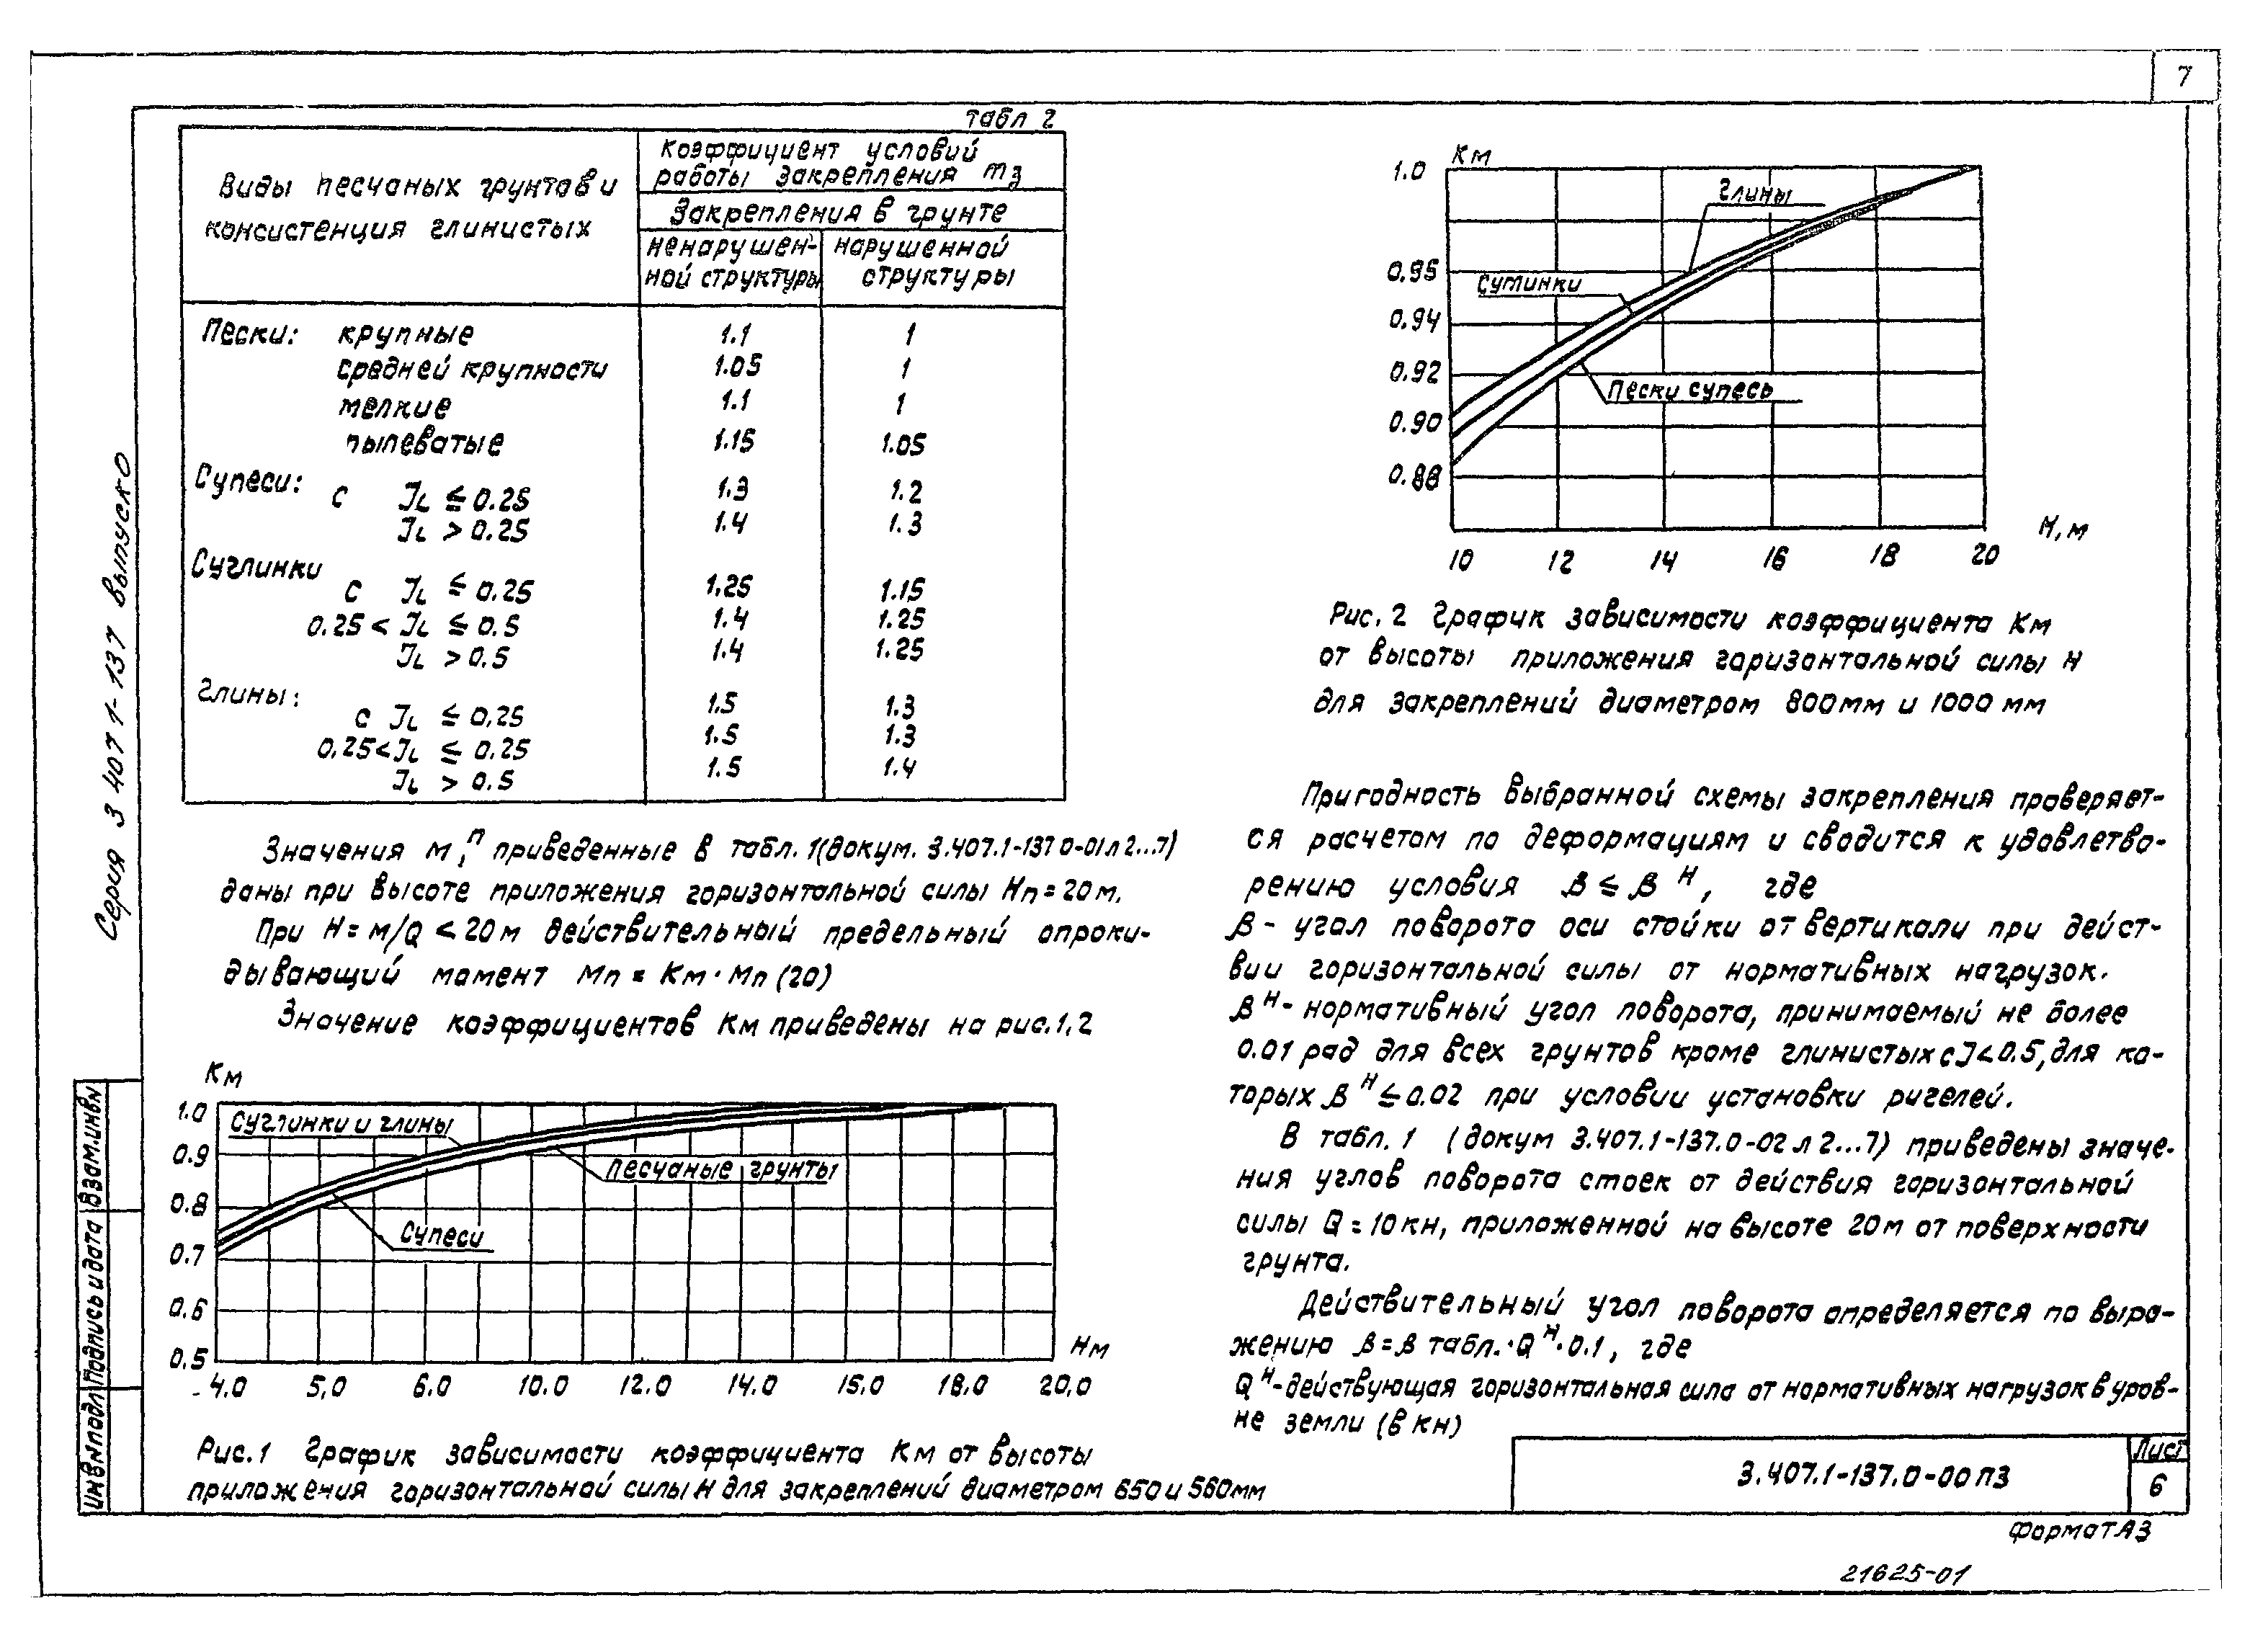 7
табл 2
Виды песчаных грунтов и
консистенция глинистых
Коэффициент условий
работы закрепления mз
Закрепления в грунте
ненарушен-
ной структуры
нарушенной
структуры
Пески: крупные 1.1 1
средней крупности 1.05 1
мелкие 1.1 1
пылеватые 1.15 1.05
Супеси:
с JL ≤ 0.25 1.3 1.2
JL > 0.25 1.4 1.3
Суглинки
с JL ≤ 0.25 1.25 1.15
0.25 < JL ≤ 0.5 1.4 1.25
JL > 0.5 1.4 1.25
глины:
с JL ≤ 0.25 1.5 1.3
0.25<JL ≤ 0.25 1.5 1.3
JL > 0.5 1.5 1.4
Значения М,ᴨ приведенные в табл. 1(докум. 3.407.1-137 0-01 л 2...7)
даны при высоте приложения горизонтальной силы Нп = 20 м.
При Н = м/Q < 20 м действительный предельный опроки-
дывающий момент Мп = Км · Мп (20)
Значение коэффициентов Км приведены на рис. 1, 2
Км
1.0
0.9
0.8
0.7
0.6
0.5
Суглинки и глины
песчаные грунты
Супеси
Нм
4.0 5,0 6.0 10.0 12.0 14.0 15.0 18.0 20,0
Рис. 1 График зависимости коэффициента Км от высоты
приложения горизонтальной силы Н для закреплений диаметром 650 и 560мм
Км
1.0
0.95
0.94
0.92
0.90
0.88
глины
Суглинки
Пески супесь
Н, м
10 12 14 16 18 20
Рис. 2 График зависимости коэффициента Км
от высоты приложения горизонтальной силы Н
для закреплений диаметром 800мм и 1000 мм
Пригодность выбранной схемы закрепления проверяет-
ся расчетом по деформациям и сводится к удовлетво-
рению условия β ≤ β ᴴ, где
β - угол поворота оси стойки от вертикали при дейст-
вии горизонтальной силы от нормативных нагрузок.
β ᴴ - нормативный угол поворота, принимаемый не более
0.01 рад для всех грунтов кроме глинистых с J<0.5, для ко-
торых β ᴴ ≤ 0.02 при условии установки ригелей.
В табл. 1 (докум 3.407.1-137.0-02 л 2...7) приведены значе-
ния углов поворота стоек от действия горизонтальной
силы Q = 10 кн, приложенной на высоте 20 м от поверхности
грунта.
Действительный угол поворота определяется по выра-
жению β = β табл. · Q ᴴ · 0.1, где
Q ᴴ - действующая горизонтальная сила от нормативных нагрузок в уров-
не земли (в кн)
3.407.1-137.0-00 ПЗ
Лист
6
Формат А3
21625-01
Серия 3 407 1-137 выпуск 0
Инв N подл Подпись и дата Взам. инв N